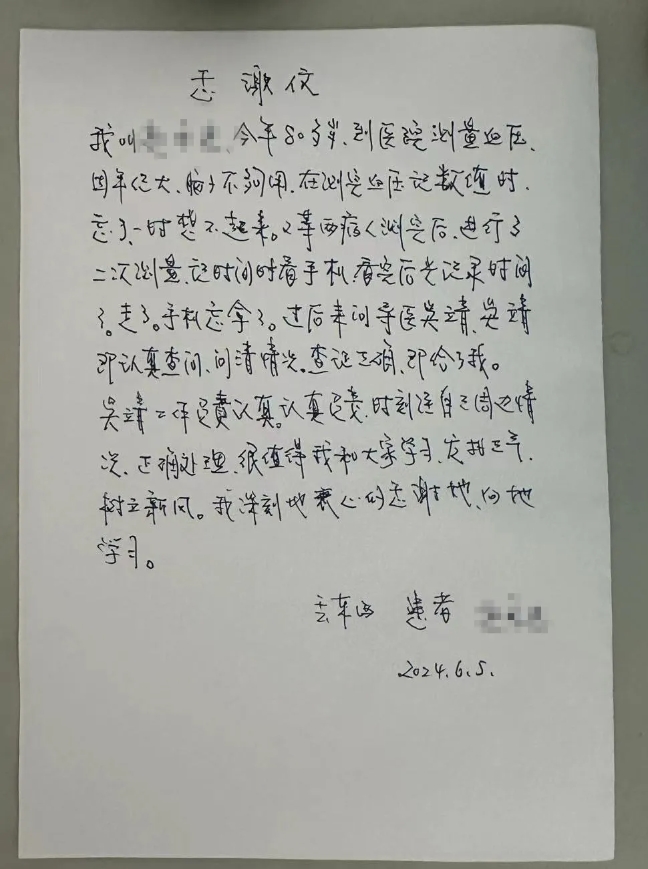 感谢信
我叫 今年80多岁、到医院测量血压、
因年纪大、脑子不够用、在测完血压记数值时、
忘了、一时想不起来。又等两病人测完后、进行了
二次测量、记时间时看手机、看完后光记录时间
了。走了。手机忘拿了。过后来问导医吴靖、吴靖
即认真查问、问清情况。查证正确、即给了我。
吴靖工作负责认真。认真负责、时刻注自己周边情
况、正确处理、很值得我和大家学习、发扬正气、
树立新风。我深刻地衷心的感谢她、向她
学习。
患者
2024.6.5.